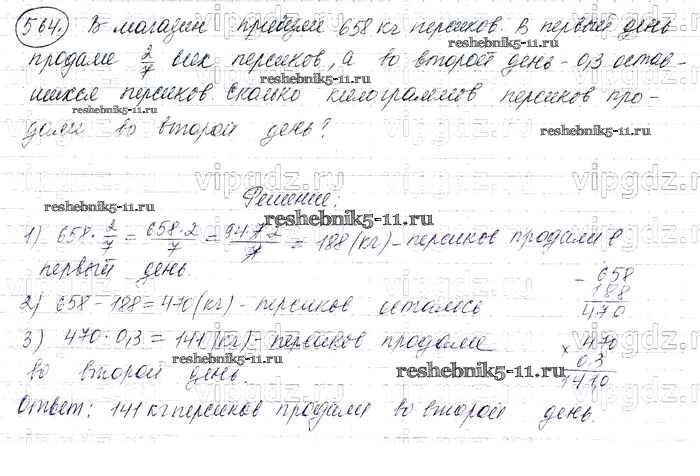 564. В магазин привезли 658 кг персиков. В первый день
продали 2/7 всех персиков, а во второй день - 0,3 остав-
шихся персиков. Сколько килограммов персиков про-
дали во второй день?
reshebnik5-11.ru
reshebnik5-11.ru
Решение:
reshebnik5-11.ru
1) 658 · 2/7 = 658·2/7 = 94·7·2/7 = 188 (кг) - персиков продали в
первый день.
2) 658 - 188 = 470 (кг) - персиков осталось
- 658
188
470
3) 470 · 0,3 = 141 (кг) - персиков продали
во второй день.
× 470
0,3
141,0
reshebnik5-11.ru
reshebnik5-11.ru
Ответ: 141 кг персиков продали во второй день.
vipgdz.ru